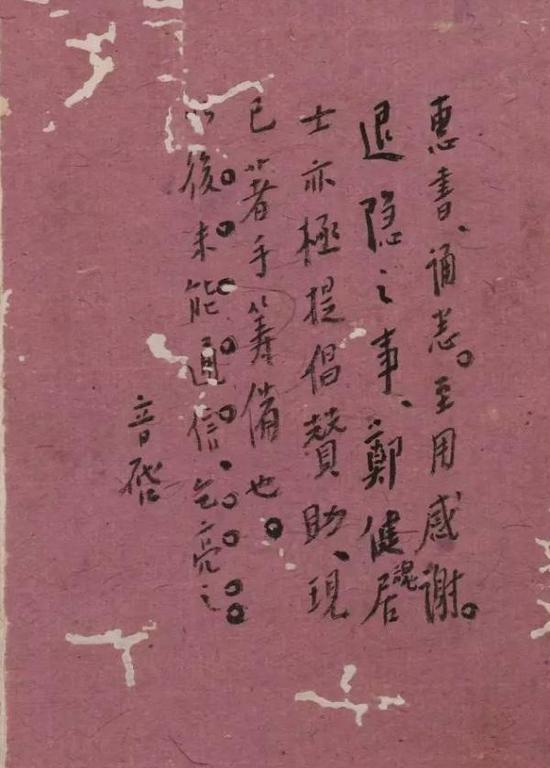 惠書、誦悉。至用感謝。
退隐之事、鄭健魂居
士亦極提倡贊助、現
已著手籌備也。
後未能通信、乞亮之。
音啓